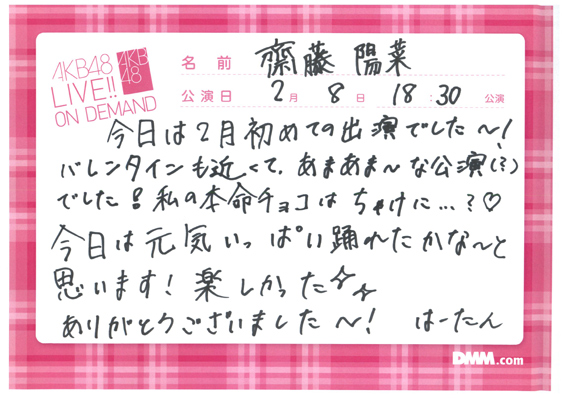 AKB48
LIVE!!
ON DEMAND
AKB
48
名前 齋藤 陽菜
公演日 2月 8日 18:30 公演
今日は2月初めての出演でした〜!
バレンタインも近くて、あまあま〜な公演(?)
でした!私の本命チョコはちゃけに…?♡
今日は元気いっぱい踊れたかな〜と
思います!楽しかった☆☆
ありがとうございました〜! はーたん
DMM.com